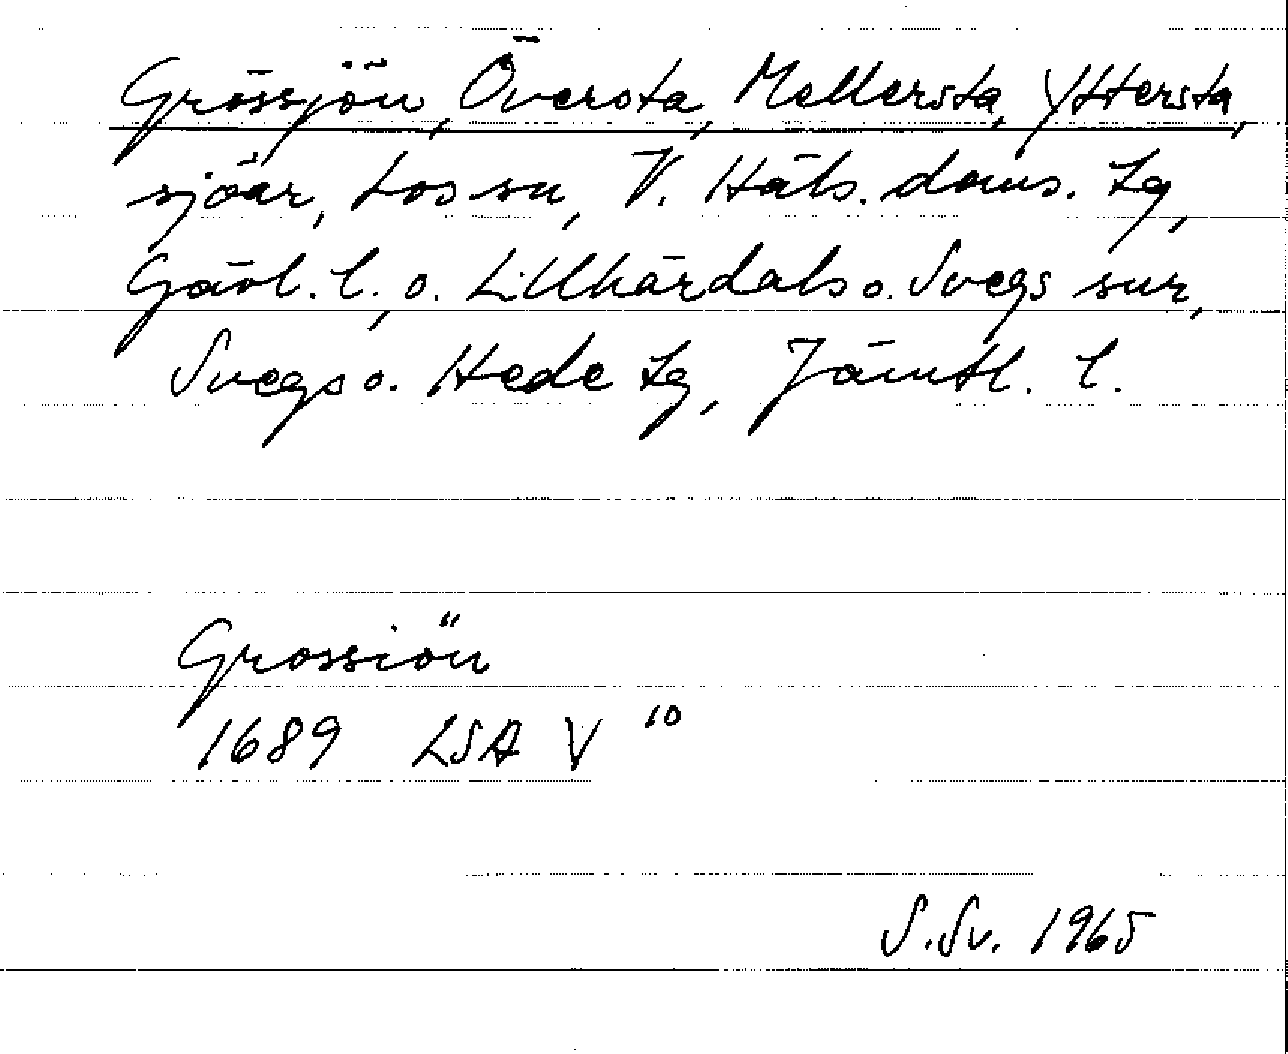 Grössjön, Översta, Mellersta, Yttersta,
sjöar, Los sn, V. Häls. doms. Lg,
Gävl. l., o. Lillhärdals o. Svegs snr,
Svegs o. Hede Lg, Jämtl. l.
Grossiön
1689 LSA V 10
S.Sv. 1965